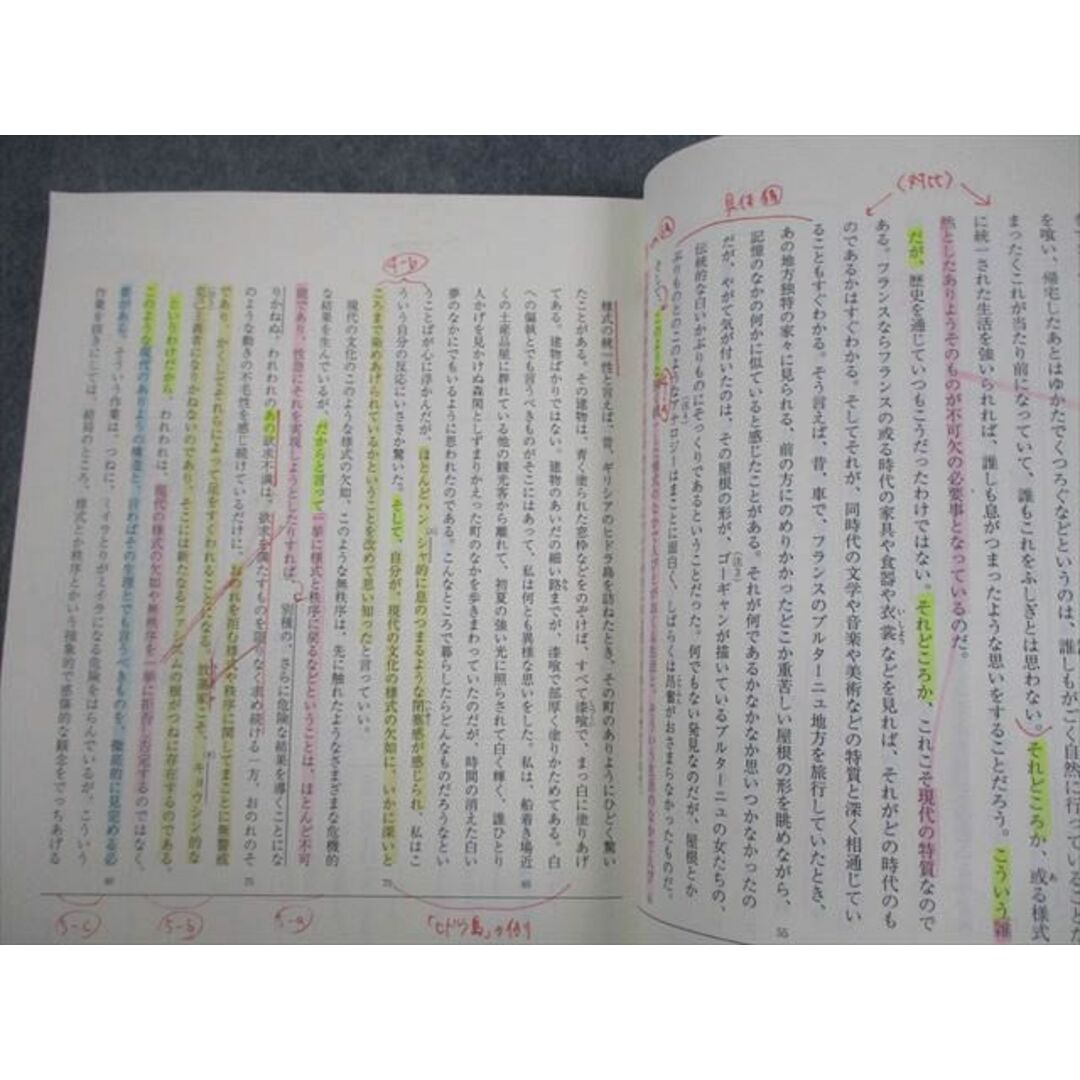 （対比）
具体例
を喰い、帰宅したあとはゆかたでくつろぐなどというのは、誰しもがごく自然に行っていることだ
まったくこれが当たり前になっていて、誰もこれをふしぎとは思わない。それどころか、或る様式
に統一された生活を強いられれば、誰しも息がつまったような思いをすることだろう。こういう雑
然としたありようそのものが不可欠の必要事となっているのだ。
だが、歴史を通じていつもこうだったわけではない。それどころか、これこそ現代の特質なので
ある。フランスならフランスの或る時代の家具や食器や衣裳などを見れば、それがどの時代のも
のであるかはすぐわかる。そしてそれが、同時代の文学や音楽や美術などの特質と深く相通じてい
ることもすぐわかる。そう言えば、昔、車で、フランスのブルターニュ地方を旅行していたとき、
あの地方独特の家々に見られる、前の方にのめりかかったどこか重苦しい屋根の形を眺めながら、
記憶のなかの何かに似ていると感じたことがある。それが何であるかなかなか思いつかなかったの
だが、やがて気が付いたのは、その屋根の形が、ゴーギャンが描いているブルターニュの女たちの、
伝統的な白いかぶりものにそっくりであるということだった。何でもない発見なのだが、屋根とか
ぶりものとのこのようなアナロジーはまことに面白く、しばらくは昂奮がおさまらなかったものだ。
55
様式の統一性と言えば、昔、ギリシアのヒドラ島を訪ねたとき、その町のありようにひどく驚い
たことがある。その建物は、青く塗られた窓枠などをのぞけば、すべて漆喰で、まっ白に塗りあげ
てある。建物ばかりではない。建物のあいだの細い路までが、漆喰で部厚く塗りかためてある。白
への偏執とでも言うべきものがそこにはあって、私は何とも異様な思いをした。私は、船着き場近
くの土産品屋に群れている他の観光客から離れて、初夏の強い光に照らされて白く輝く、誰ひとり
人かげを見かけぬ森閑としずまりかえった町のなかを歩きまわっていたのだが、時間の消えた白い
夢のなかにでもいるように思われたのである。こんなところで暮らしたらどんなものだろうなとい
うことばが心に浮かんだが、ほとんどハンシャ的に息のつまるような閉塞感が感じられ、私はこ
ういう自分の反応にいささか驚いた。そして、自分が、現代の文化の様式の欠如に、いかに深いと
ころまで染めあげられているかということを改めて思い知ったと言っていい。
現代の文化のこのような様式の欠如、このような無秩序は、先に触れたようなさまざまな危機的
な結果を生んでいるが、だからと言って一挙に様式と秩序に戻るなどということは、ほとんど不可
能であり、性急にそれを実現しようとしたりすれば、別種の、さらに危険な結果を導くことにな
りかねぬ。われわれのあの欲求不満は、欲求を満たすものを限りなく求め続ける一方、おのれのそ
のような動きの不毛性を感じ続けているだけに、
であり、かくしてそれらによって足をすくわれることになる。放蕩家こそ、キョウシン的な
主義者になりかねないのであり、そこには新たなるファシズムの根がつねに存在するのである。
というわけだから、われわれは、現代の様式の欠如や無秩序を一挙に拒否し否定するのではなく、
このような現代のありようの構造と、言わばその生理とでも言うべきものを、徹底的に見定める必
要がある。そういう作業は、つねに、ミイラとりがミイラになる危険をはらんでいるが、こういう
作業を抜きにしては、結局のところ、様式とか秩序とかいう抽象的で感傷的な観念をでっちあげる
65
70
75
80
4-b
「ヒドラ島」の例
5-a
5-b
5-c